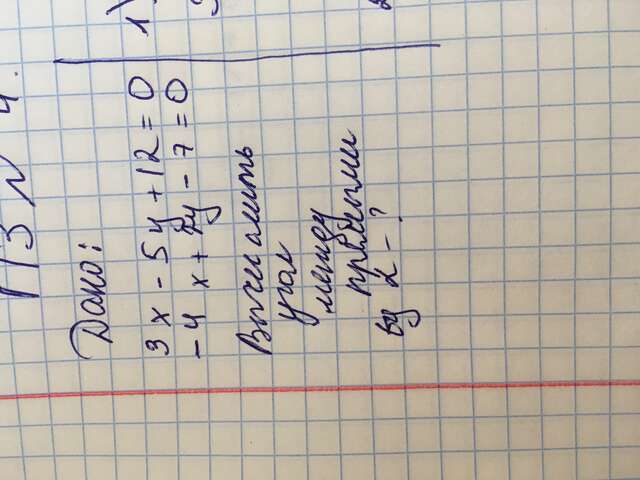 ПЗ № 4.
Дано:
3x - 5y + 12 = 0
1)
-4x + 2y - 7 = 0
Вычислить
угол
между
прямыми
tg α - ?